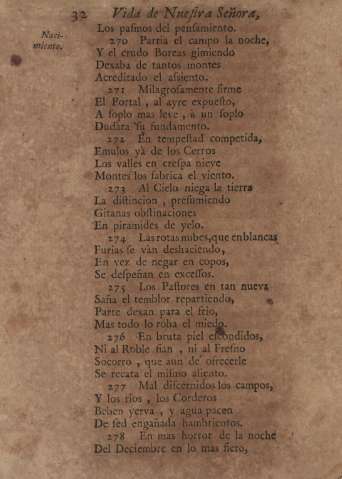 32 Vida de Nuestra Señora,
Naci-
miento.
Los pasmos del pensamiento.
270 Partia el campo la noche,
Y el crudo Boreas gimiendo
Dexaba de tantos montes
Acreditado el assiento.
271 Milagrosamente firme
El Portal, al ayre expuesto,
A soplo mas leve, à un soplo
Dudàra su fundamento.
272 En tempestad competida,
Emulos yà de los Cerros
Los valles en crespa nieve
Montes los fabrica el viento.
273 Al Cielo niega la tierra
La distincion, presumiendo
Gitanas obstinaciones
En piramides de yelo.
274 Las rotas nubes, que en blancas
Furias se vàn deshaciendo,
En vez de negar en copos,
Se despeñan en excessos.
275 Los Pastores en tan nueva
Saña el temblor repartiendo,
Parte dexan para el frio,
Mas todo lo roba el miedo.
276 En bruta piel escondidos,
Ni al Roble fian, ni al Fresno
Socorro, que aun de ofrecerle
Se recata el mismo aliento.
277 Mal discernidos los campos,
Y los rios, los Corderos
Beben yerva, y agua pacen
De sed engañada hambrientos.
278 En mas horror de la noche
Del Deciembre en lo mas fiero,